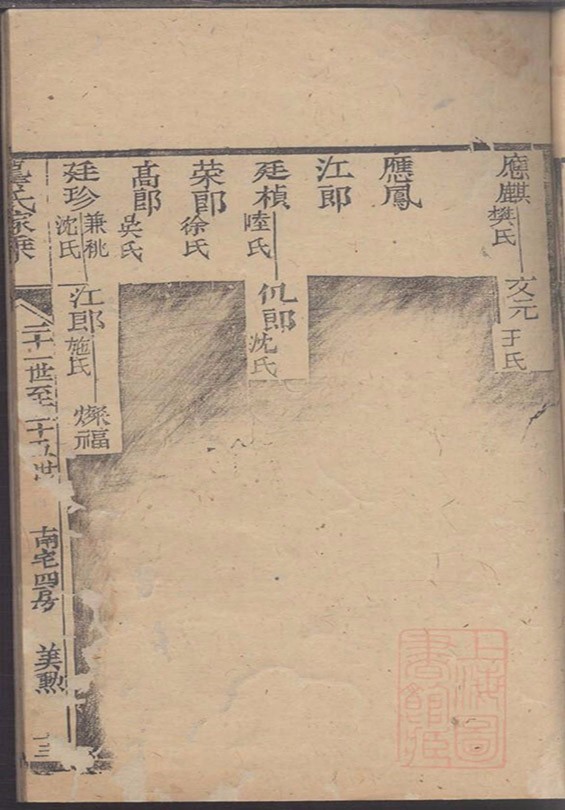 應麒 樊氏
文元 王氏
應鳳
江郎
廷楨 陸氏
仉郎 沈氏
荣郎 徐氏
高郎 吳氏
廷珍 兼祧 沈氏
江郎 施氏
燦福
氏家乘
二十一世至二十五世
南宅四房
美勲
上海圖書館藏